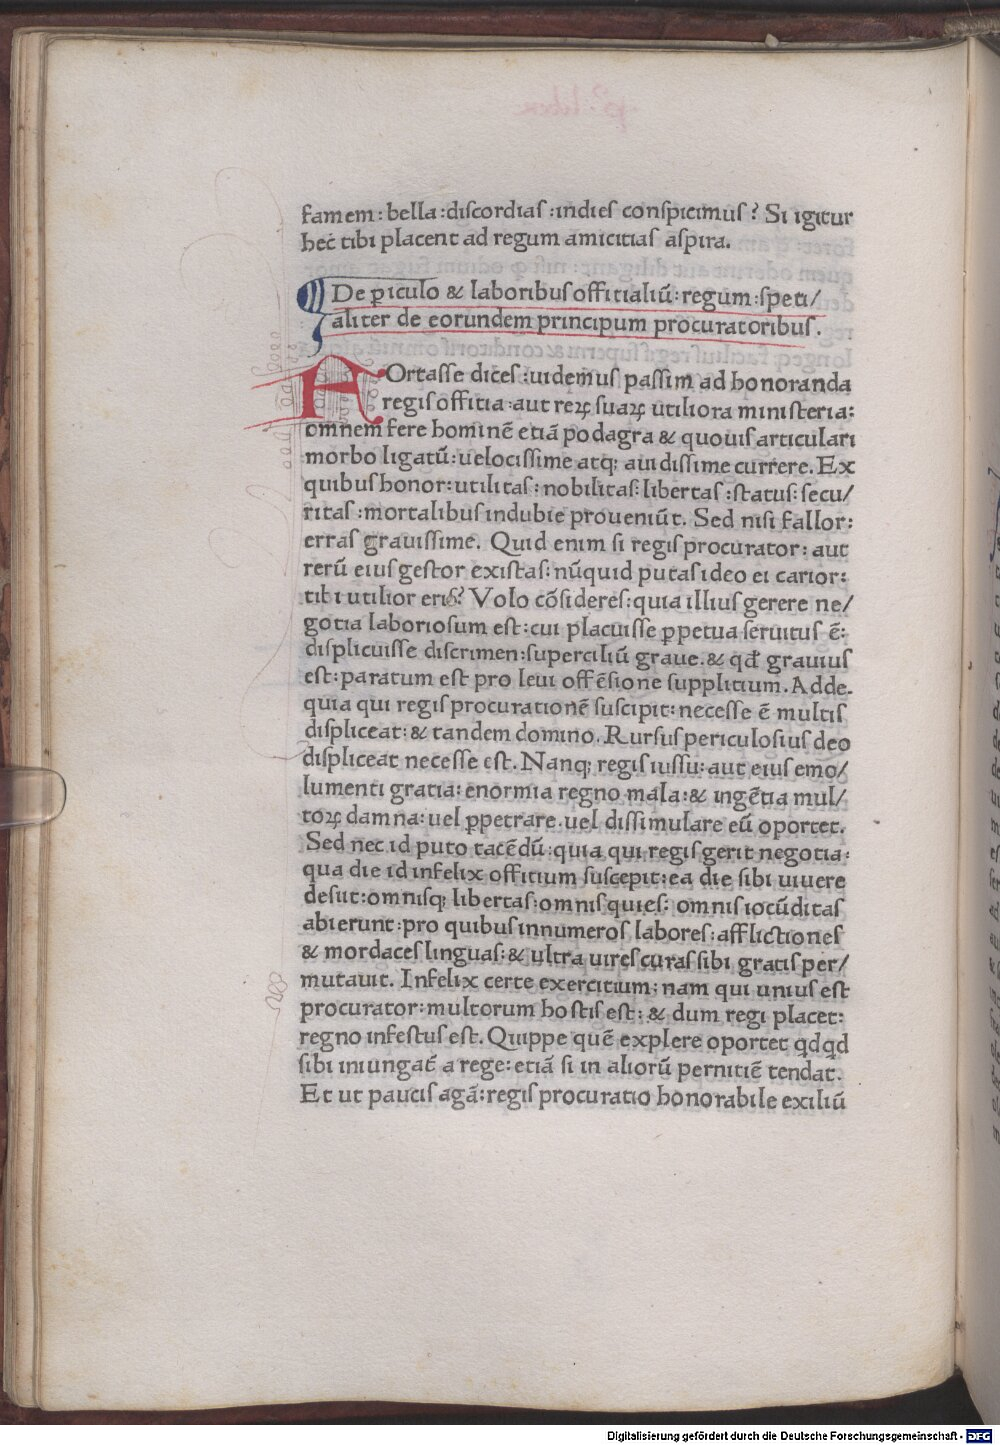 famem: bella :discordias :indies conspicimus? Si igitur
hec tibi placent ad regum amicitias aspira.
De ꝑiculo & laboribus offitialiũ: regum: speti/
aliter de eorundem principum procuratoribus.
AOrtasse dices :uidemus passim ad honoranda
regis offitia aut reꝝ suaꝝ utiliora ministeria:
omnem fere hominẽ etiã podagra & quouis articulari
morbo ligatũ: uelocissime atq; auidissime currere. Ex
quibus honor: utilitas: nobilitas: libertas :status: secu/
ritas :mortalibus indubie proueniũt. Sed nisi fallor:
erras grauissime. Quid enim si regis procurator: aut
rerũ eius gestor existas: nũquid putas ideo ei carior:
tibi utilior eris? Volo cõsideres: quia illius gerere ne/
gotia laboriosum est: cui placuisse ꝑpetua seruitus ẽ:
displicuisse discrimen: superciliũ graue. & qđ grauius
est: paratum est pro leui offẽsione supplitium. Adde.
quia qui regis procurationẽ suscipit: necesse ẽ multis
displiceat: & tandem domino. Rursus periculosius deo
displiceat necesse est. Nanq; regis iussu: aut eius emo/
lumenti gratia: enormia regno mala: & ingẽtia mul/
toꝝ damna: uel ꝑpetrare uel dissimulare eũ oportet.
Sed nec id puto tacẽdũ: quia qui regis gerit negotia:
qua die id infelix offitium suscepit: ea die sibi uiuere
desiit: omnisq; libertas: omnis quies: omnis iocũditas
abierunt: pro quibus innumeros labores: afflictiones
& mordaces linguas: & ultra uires curas sibi gratis per/
mutauit. Infelix certe exercitium; nam qui unius est
procurator: multorum hostis est: & dum regi placet:
regno infestus est. Quippe quẽ explere oportet qdqd
sibi iniungat̃ a rege: etiã si in aliorũ pernitiẽ tendat̃.
Et ut paucis agã: regis procuratio honorabile exiliũ
Digitalisierung gefördert durch die Deutsche Forschungsgemeinschaft - DFG